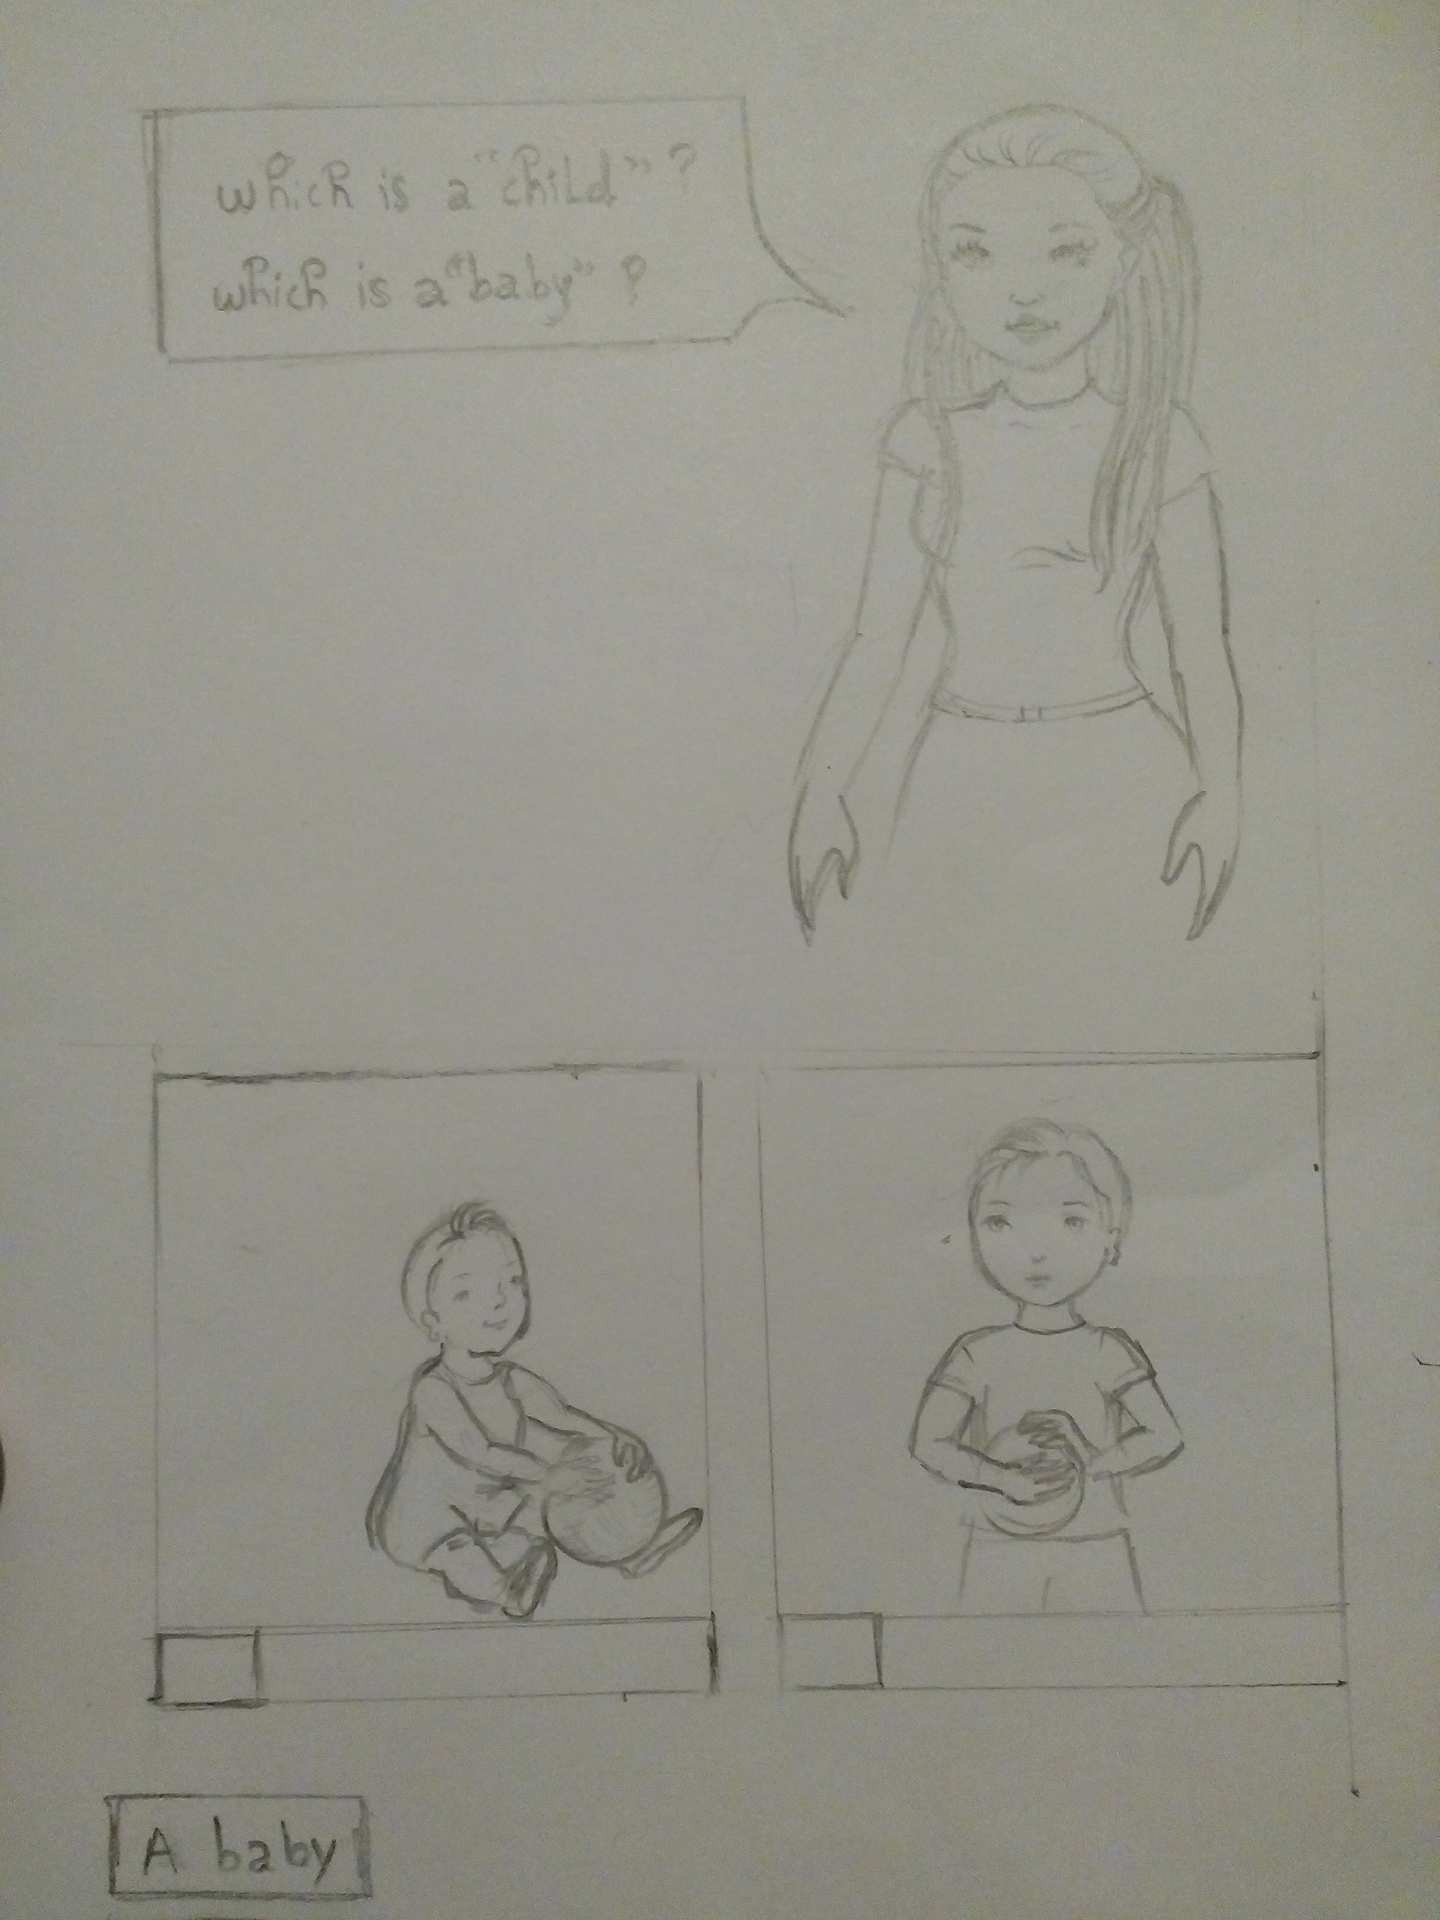 which is a "chiLd" ?
which is a "baby" ?
A baby